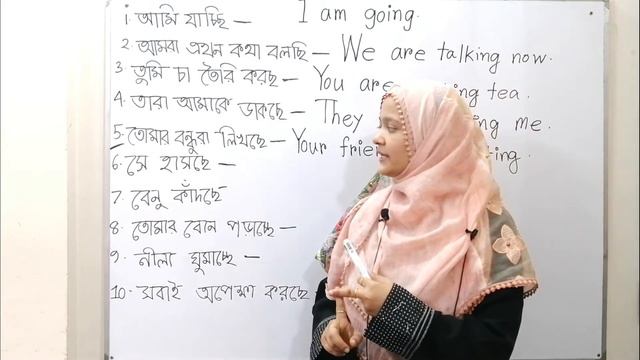 1. আমি যাচ্ছি — I am going.
2. আমরা এখন কথা বলছি — We are talking now.
3. তুমি চা তৈরি করছ — You are ing tea.
4. তারা আমাকে ডাকছে — They ing me.
5. তোমার বন্ধুরা লিখছে — Your frie ting.
6. সে হাসছে —
7. বেনু কাঁদছে
8. তোমার বোন পড়ছে —
9. নীলা ঘুমাচ্ছে —
10. সবাই অপেক্ষা করছে